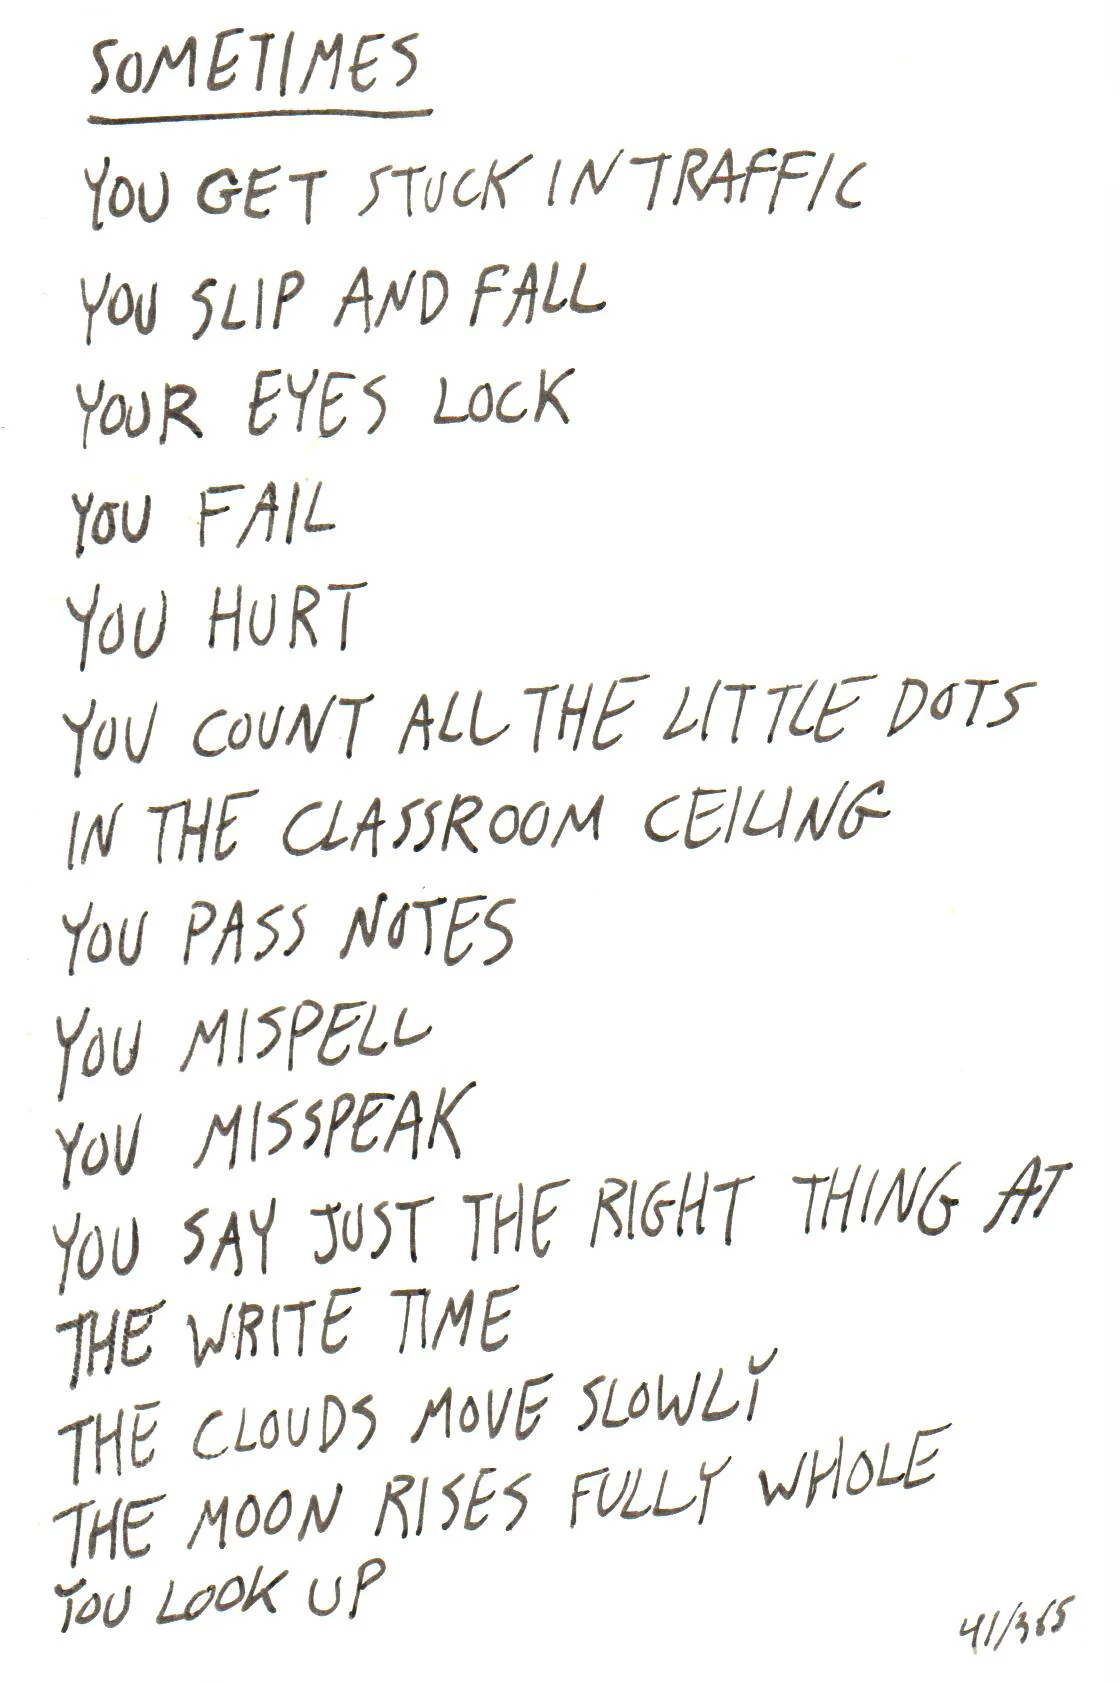 SOMETIMES
YOU GET STUCK IN TRAFFIC
YOU SLIP AND FALL
YOUR EYES LOCK
YOU FAIL
YOU HURT
YOU COUNT ALL THE LITTLE DOTS
IN THE CLASSROOM CEILING
YOU PASS NOTES
YOU MISPELL
YOU MISSPEAK
YOU SAY JUST THE RIGHT THING AT
THE WRITE TIME
THE CLOUDS MOVE SLOWLY
THE MOON RISES FULLY WHOLE
YOU LOOK UP
41/365